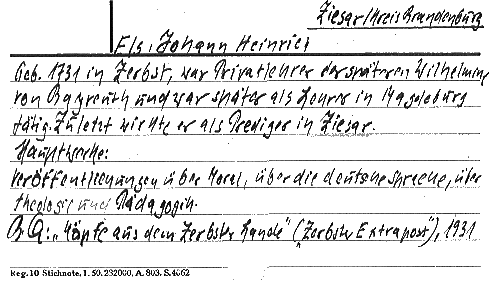 Ziesar/Kreis Brandenburg
Fls, Johann Heinrich
Geb. 1731 in Zerbst, war Privatlehrer der späteren Wilhelmine
von Bayreuth und war später als Lehrer in Magdeburg
tätig. Zuletzt wirkte er als Prediger in Ziesar.
Hauptwerke:
Veröffentlichungen über Moral, über die deutsche Sprache, über
Theologie und Pädagogik.
B Q.: „Köpfe aus dem Zerbster Lande" (Zerbster Extrapost"), 1931
Reg. 10 Stichnote, 1. 50. 232000, A. 803. S. 4662